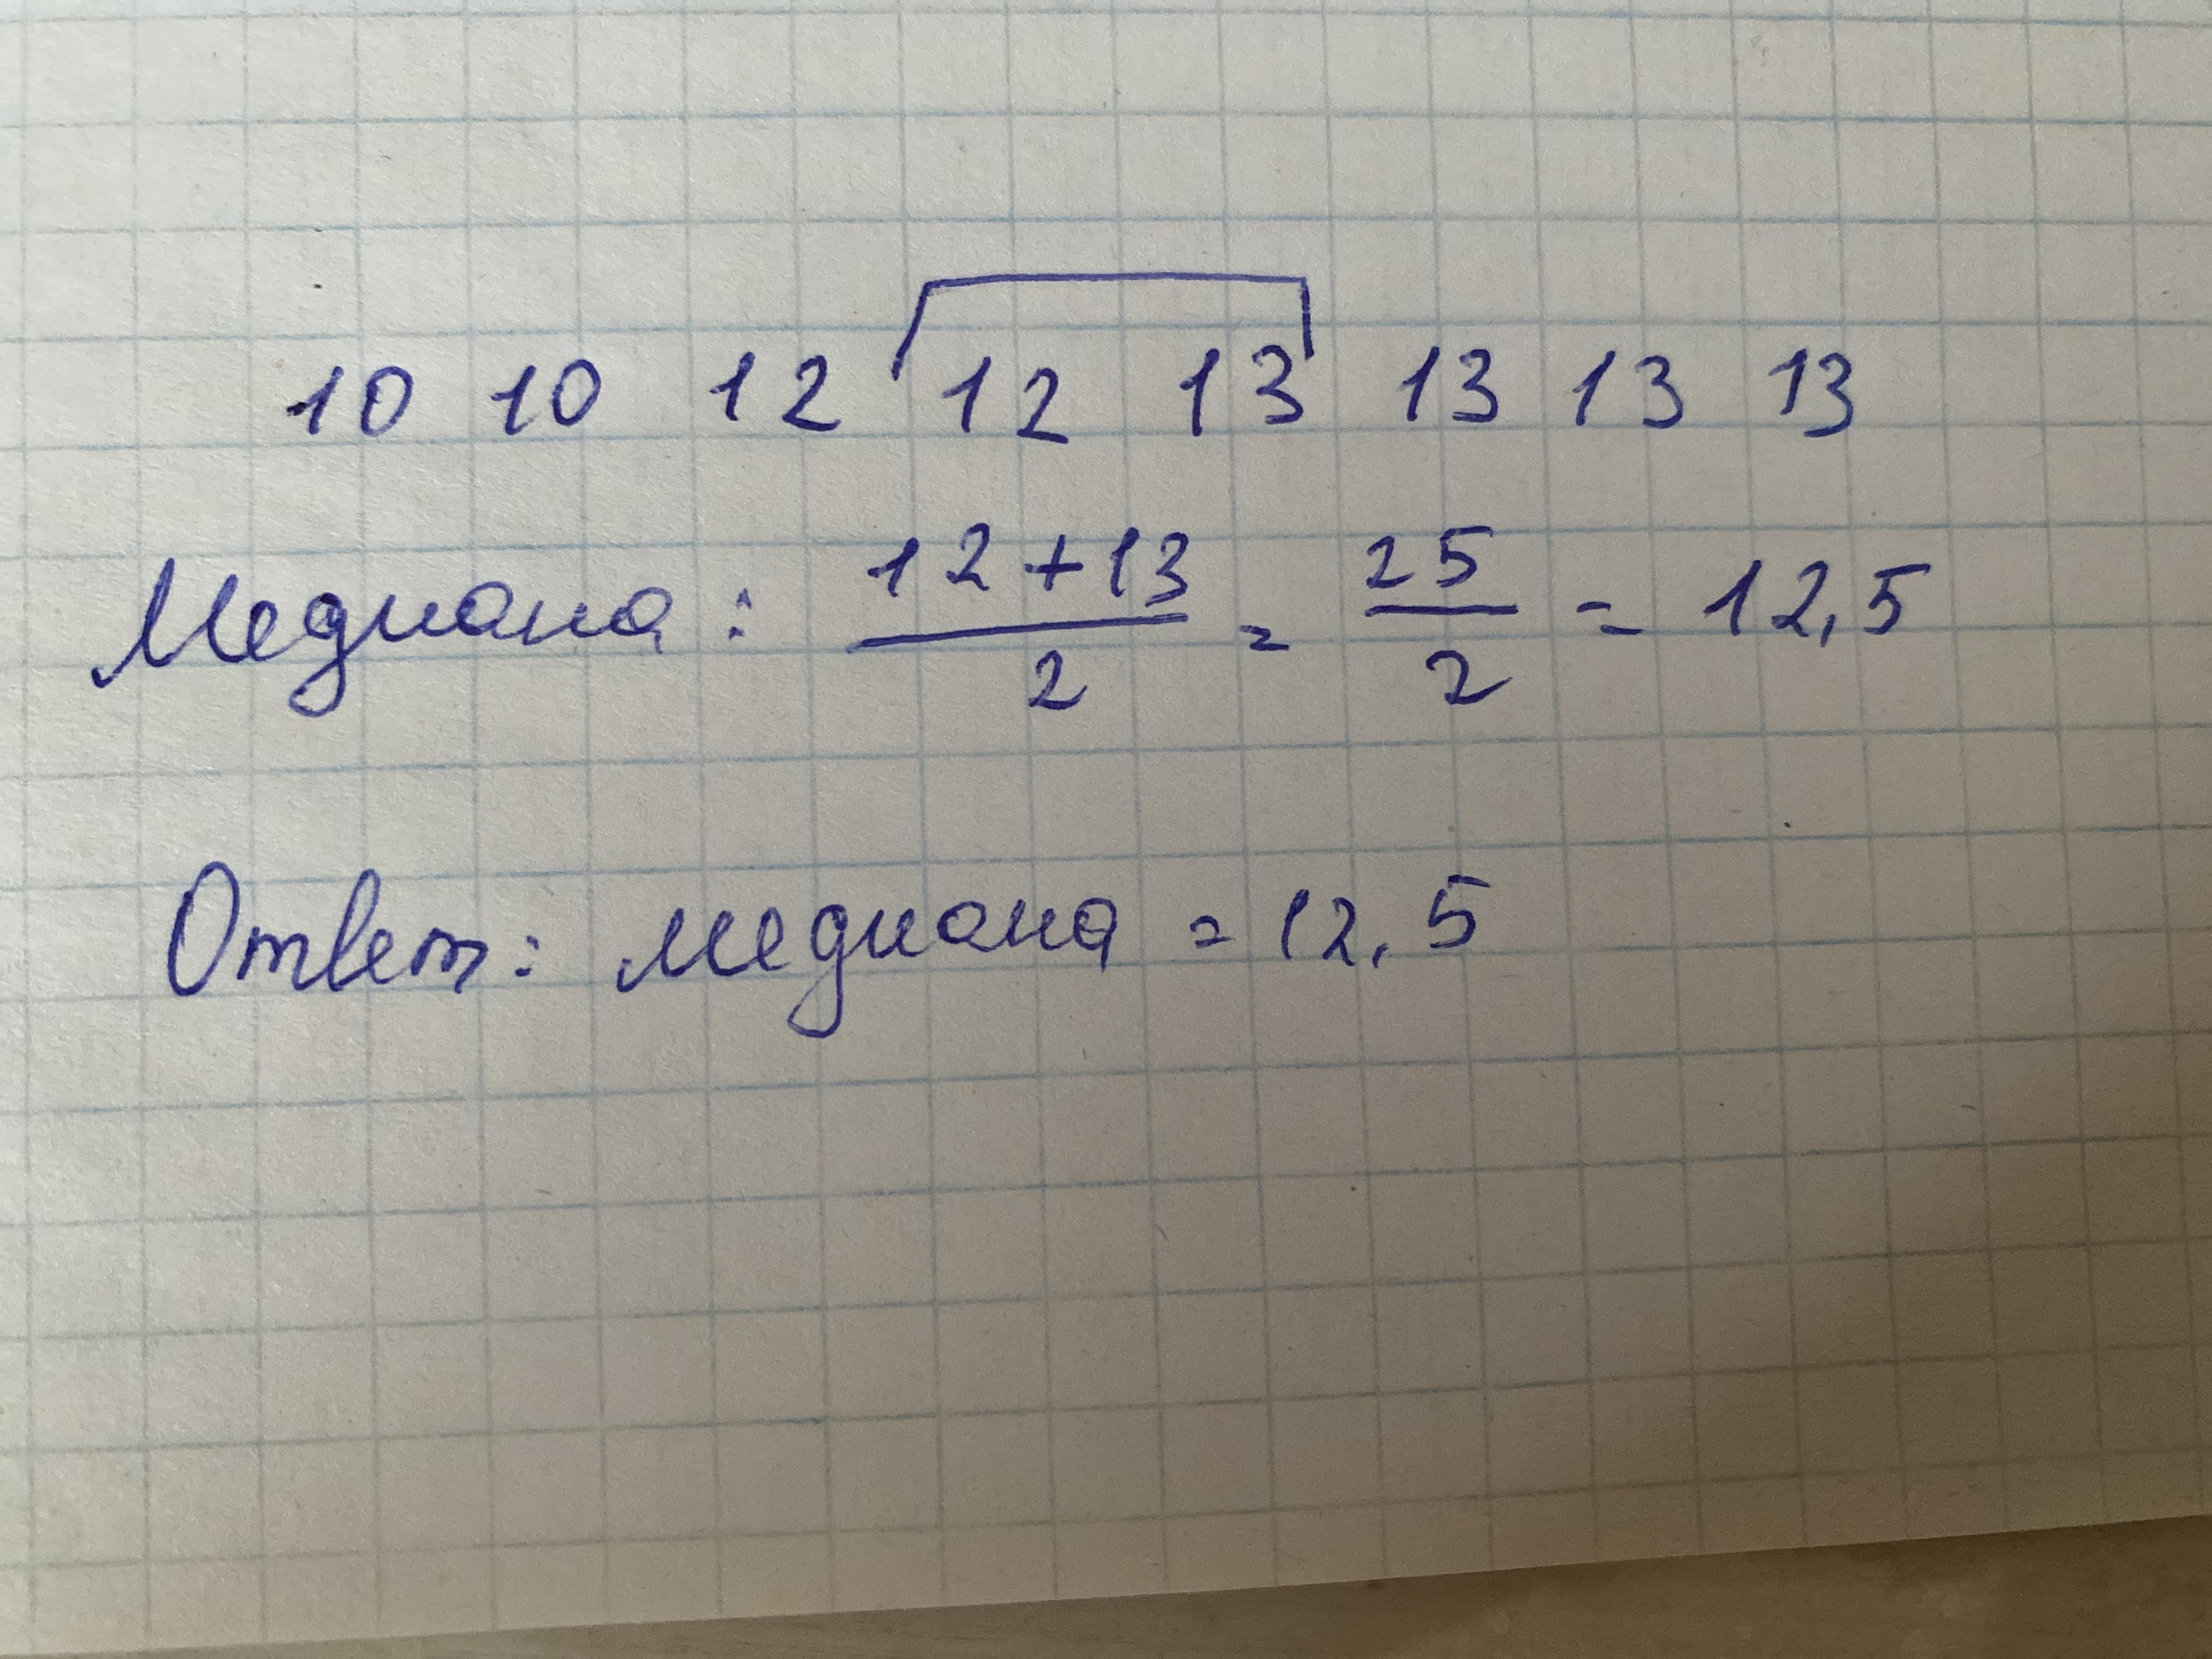 10 10 12 12 13 13 13 13
Медиана: 12+13/2 = 25/2 = 12,5
Ответ: медиана = 12,5